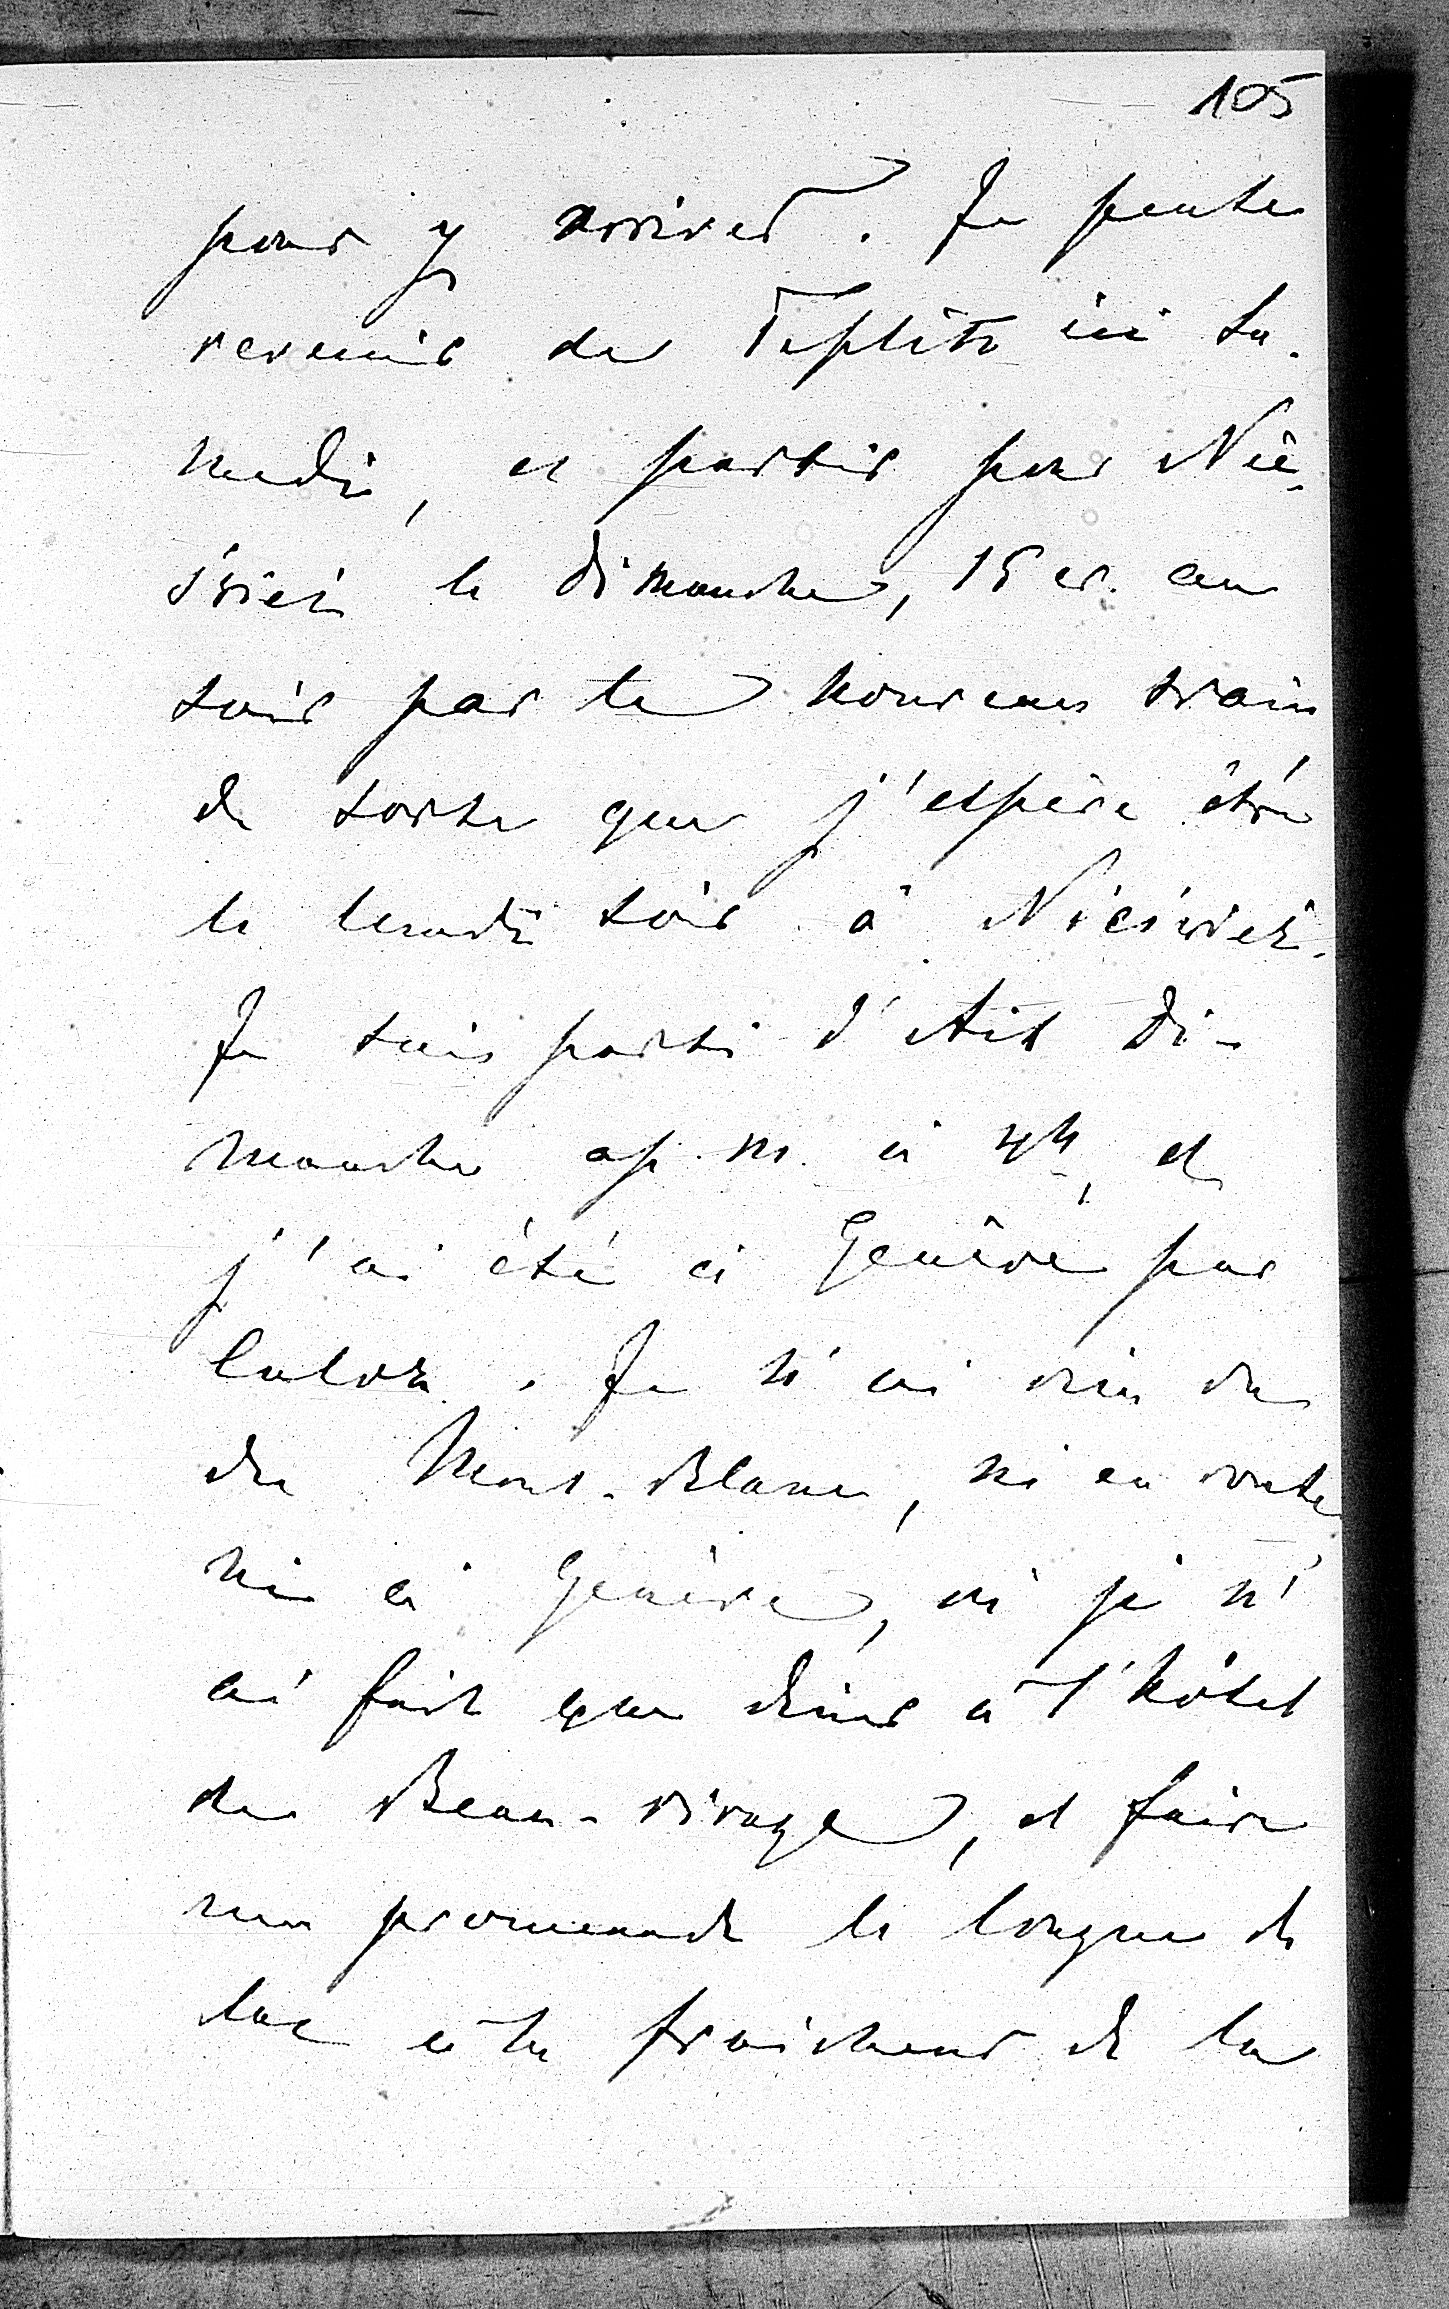 105
pour y arriver. Je pense
revenir de Teplitz ici Sa-
medi, et partir pour Nie-
śwież le dimanche, 15 cr. au
soir par le nouveau train
de sorte que j'espère être
le lundi soir à Nieśwież.
Je suis parti d'Aix Di-
manche ap. m. à 4h, et
j'ai été à Genève par
Culoz. Je n'ai rien vu
du Mont-Blanc, ni en route
ni à Genève, où je n'
ai fait que dîner à l'hôtel
de Beau-rivage, et faire
une promenade le longue du
lac à la fraicheur de la